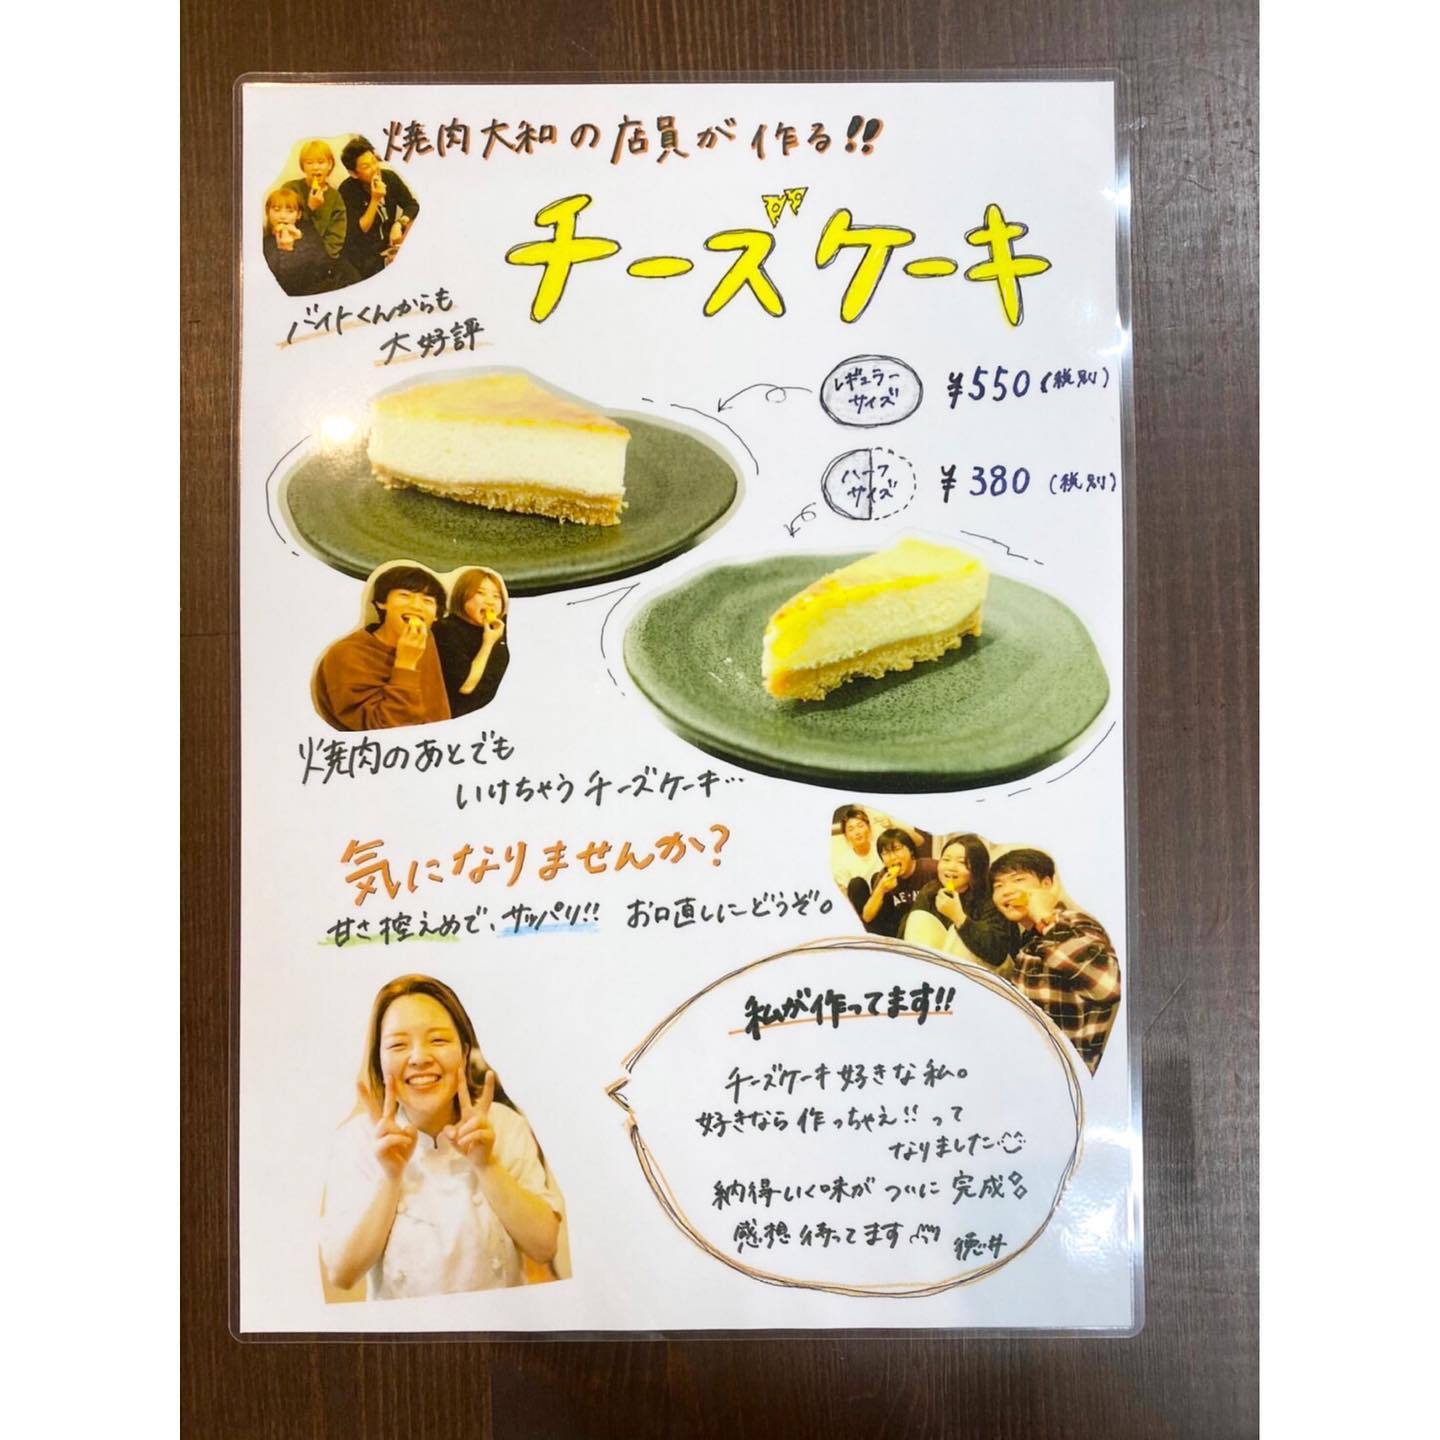 焼肉大和の店員が作る!!
チーズケーキ
バイトくんからも
大好評
レギュラー
サイズ
¥550(税別)
ハーフ
サイズ
¥380(税別)
焼肉のあとでも
いけちゃうチーズケーキ…
気になりませんか?
甘さ控えめで、サッパリ!! お口直しにどうぞ。
私が作ってます!!
チーズケーキ好きな私。
好きなら作っちゃえ!!って
なりました
納得いく味がついに完成
感想待ってます 徳井